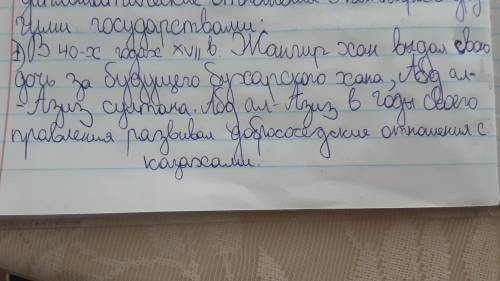 гими государствами:
1) В 40-х годах XVII в. Жангир хан выдал свою
дочь за будущего бухарского хана, Абд ал-
Азиз султана. Абд ал-Азиз в годы своего
правления развивал добрососедские отношения с
казахами.